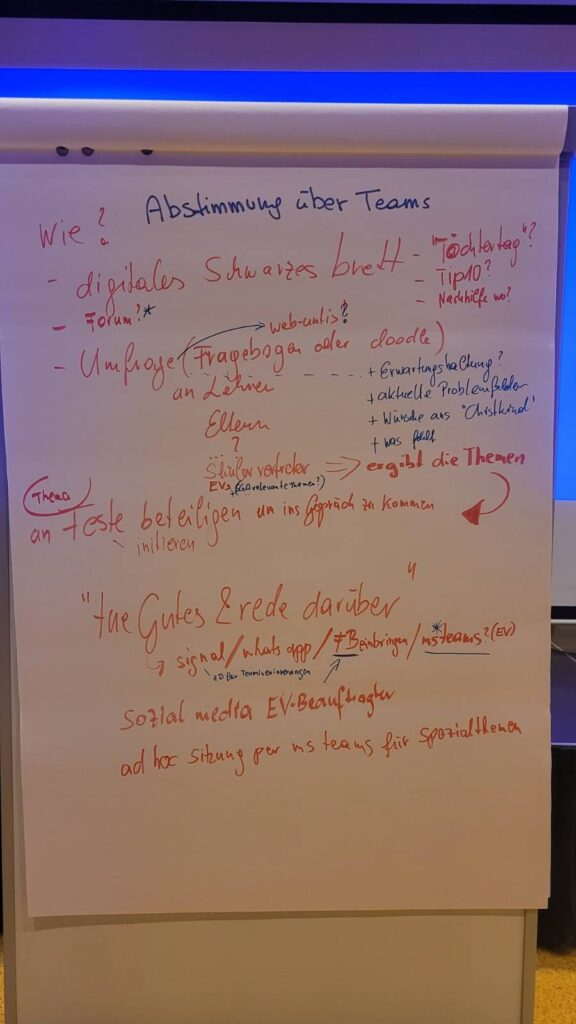 Abstimmung über Teams
Wie?
- digitales Schwarzes brett
- "Töchtertag"?
- Tip10?
- Nachhilfe wo?
- Forum?*
web-untis?
- Umfrage (Fragebogen oder doodle)
an Lehrer
Eltern
?
Schüler vertreter
EVs (SGA relevante themen?)
+ Erwartungshaltung?
+ aktuelle Problemfelder
+ Wünsche ans "Christkind"
+ was fehlt
=> ergibt die Themen
Thema
an Feste beteiligen um ins Gespräch zu kommen
initieren
"tue Gutes & rede darüber"
signal/whats app/FB einbringen/ms*teams?(EV)
zB für Terminerinnerungen
Sozial media EV-Beauftragter
ad hoc sitzung per ms teams für spezialthemen